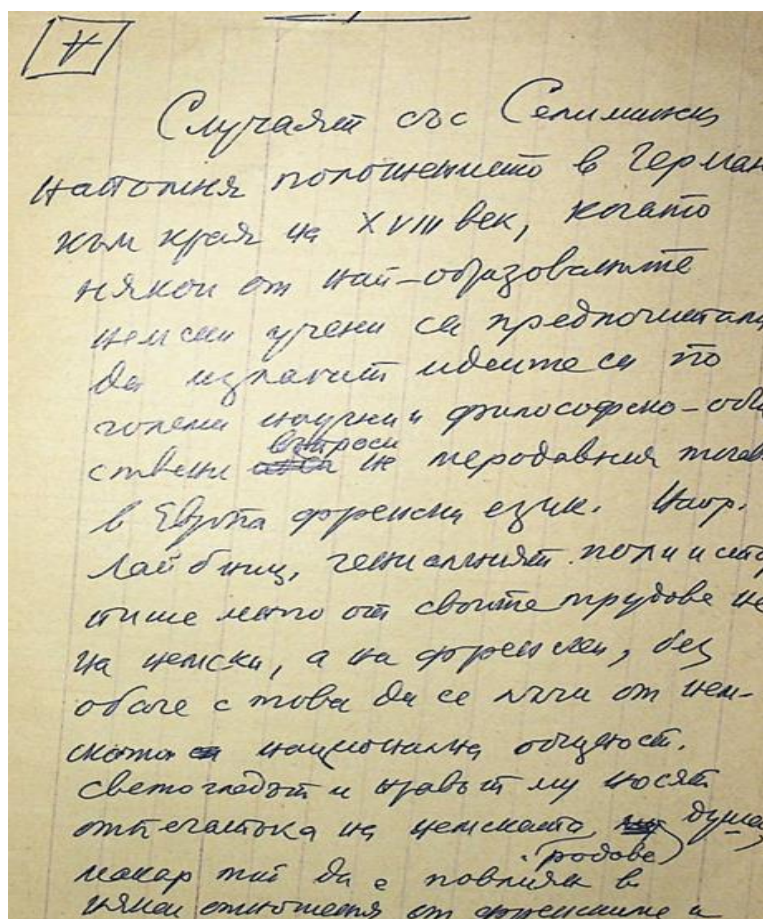 A
Случаят със Селимински
напомня положението в Герман
към края на XVIII век, когато
някои от най-образованите
немски учени са предпочитали
да излагат идеите си по
големи научни и философско-общ
ствени въпроси на меродавния тогав
в Европа френски език. Напр.
Лайбниц, гениалният полиистор
пише много от своите трудове не
на немски, а на френски, без
обаче с това да се лъчи от нем-
ската национална общност.
Светогледът и нравът му носят
отпечатъка на немската душа,
родове
макар той да е повлиян в
някои отношения от френските и